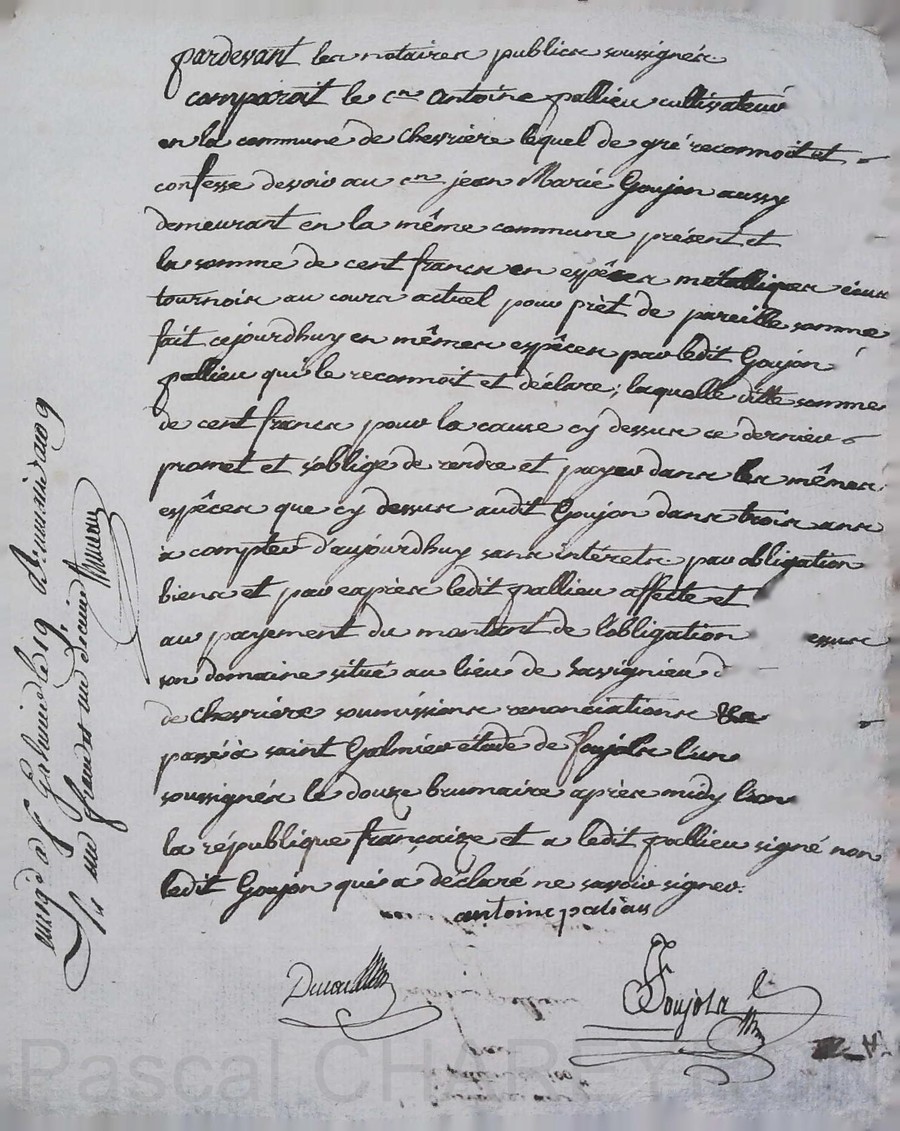 pardevant les notaires publics soussignés
comparoit le cen Antoine pallieu cultivateur
en la commune de Chevriere lequel de gré reconnoit et
confesse devoir au cen jean Marie Goujon aussy
demeurant en la même commune présent et
la somme de cent francs en espèces métalliques
tournois au cours actuel pour prèt de pareille somme
fait cejourdhuy en mêmes espêces par ledit Goujon
pallieu qui le reconnoit et déclare; laquelle ditte somme
de cent francs pour la cause cy dessus ce dernier
promet et s'oblige de rendre et payer dans les mêmes
espêces que cy dessus audit Goujon dans trois ans
a compter d'aujourdhuy sans intérets par obligation
biens et par exprès ledit pallieu affecte et
au payement du montant de l'obligation essus
son domaine situé au lieu de Savignieu d
de Chevriére soumissions renonciations &a
passé à saint Galmier étude de foujols l'un
soussignés le douze brumaire après midy l'an
la république françaize et a ledit pallieu signé non
ledit Goujon qui a déclaré ne savoir signer.
antoine paliau
Foujols
enrg à St Galmier le 19 Brumaire an 9
un franc
Pascal CHAREYRON